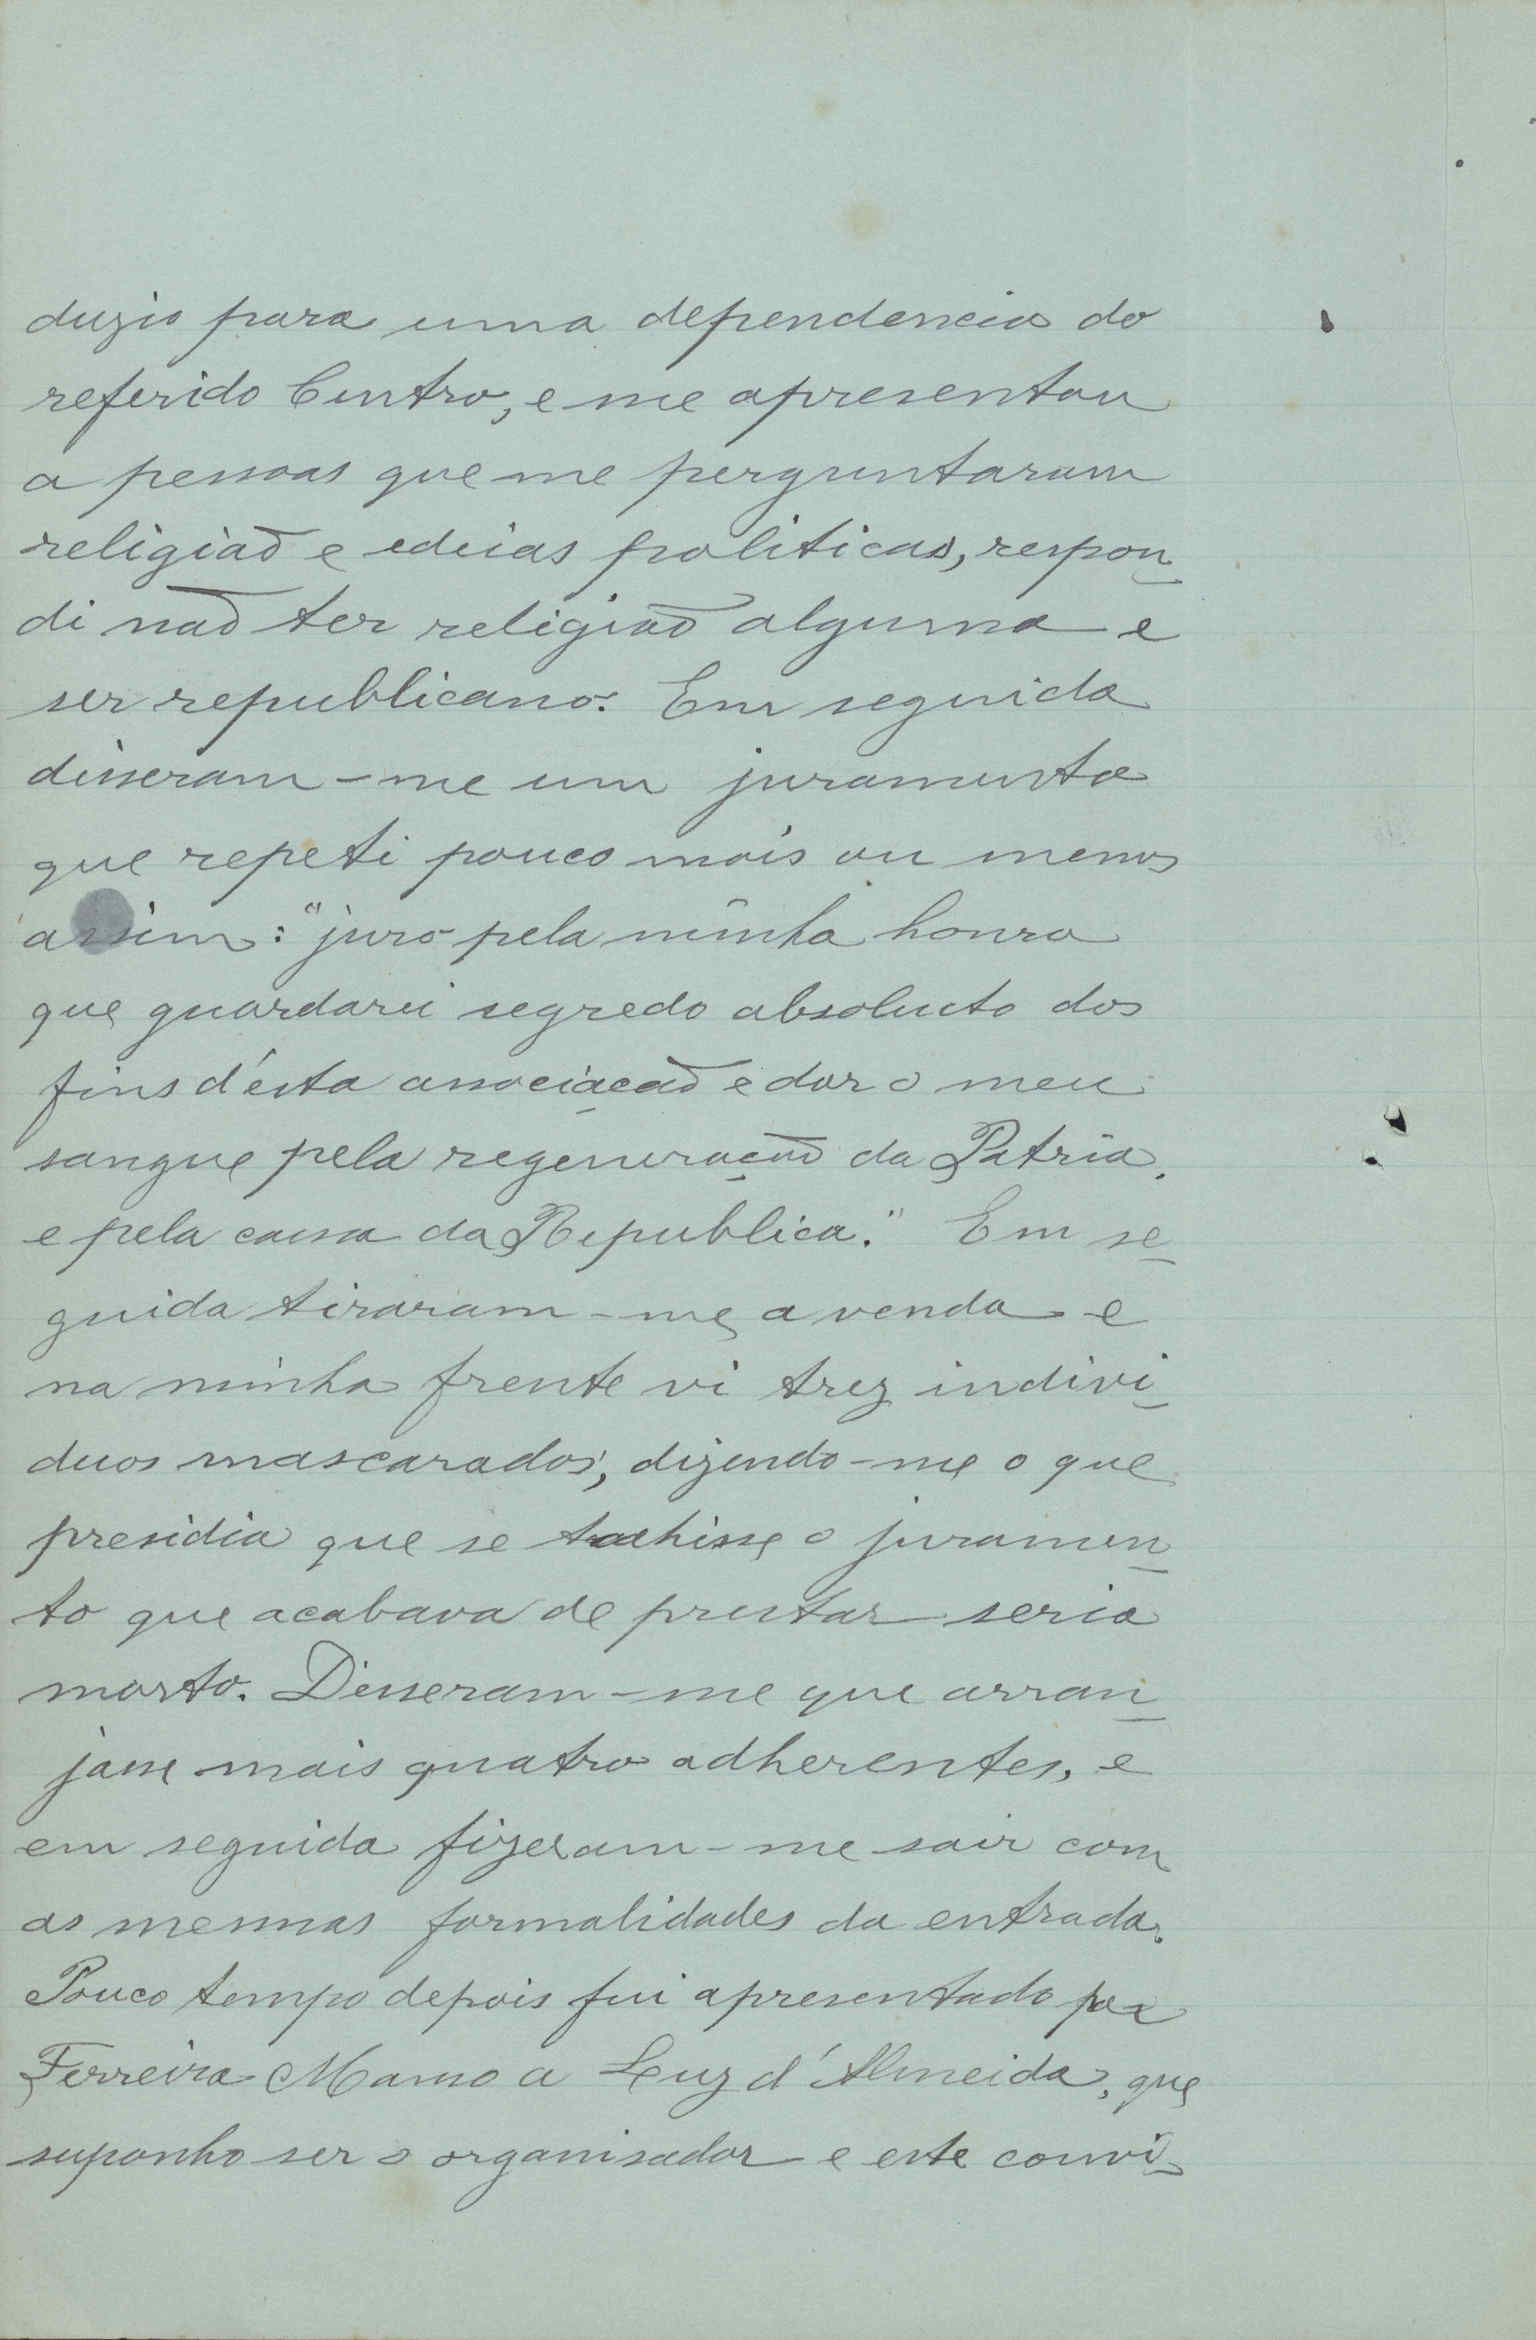 duzio para uma dependencia do
referido Centro, e me apresentou
a pessoas que me perguntaram
religiaõ e edeias politicas, respon-
di naõ ter religiaõ alguma e
ser republicano. Em seguida
disseram-me um juramento
que repeti pouco mais ou menos
assim: "juro pela minha honra
que guardarei segredo absoluto dos
fins d'ésta associaçaõ e dar o meu
sangue pela regeneraçaõ da Patria,
e pela causa da Republica." Em se-
guida tiraram-me a venda e
na minha frente vi trez indivi-
duos mascarados, dizendo-me o que
presidia que se trahisse o juramen-
to que acabava de prestar seria
morto. Disseram-me que arran-
jasse mais quatro adherentes, e
em seguida fizeram-me sair com
as mesmas formalidades da entrada.
Pouco tempo depois fui apresentado por
Ferreira Manso a Luz d'Almeida, que
suponho ser o organisador e este convi-